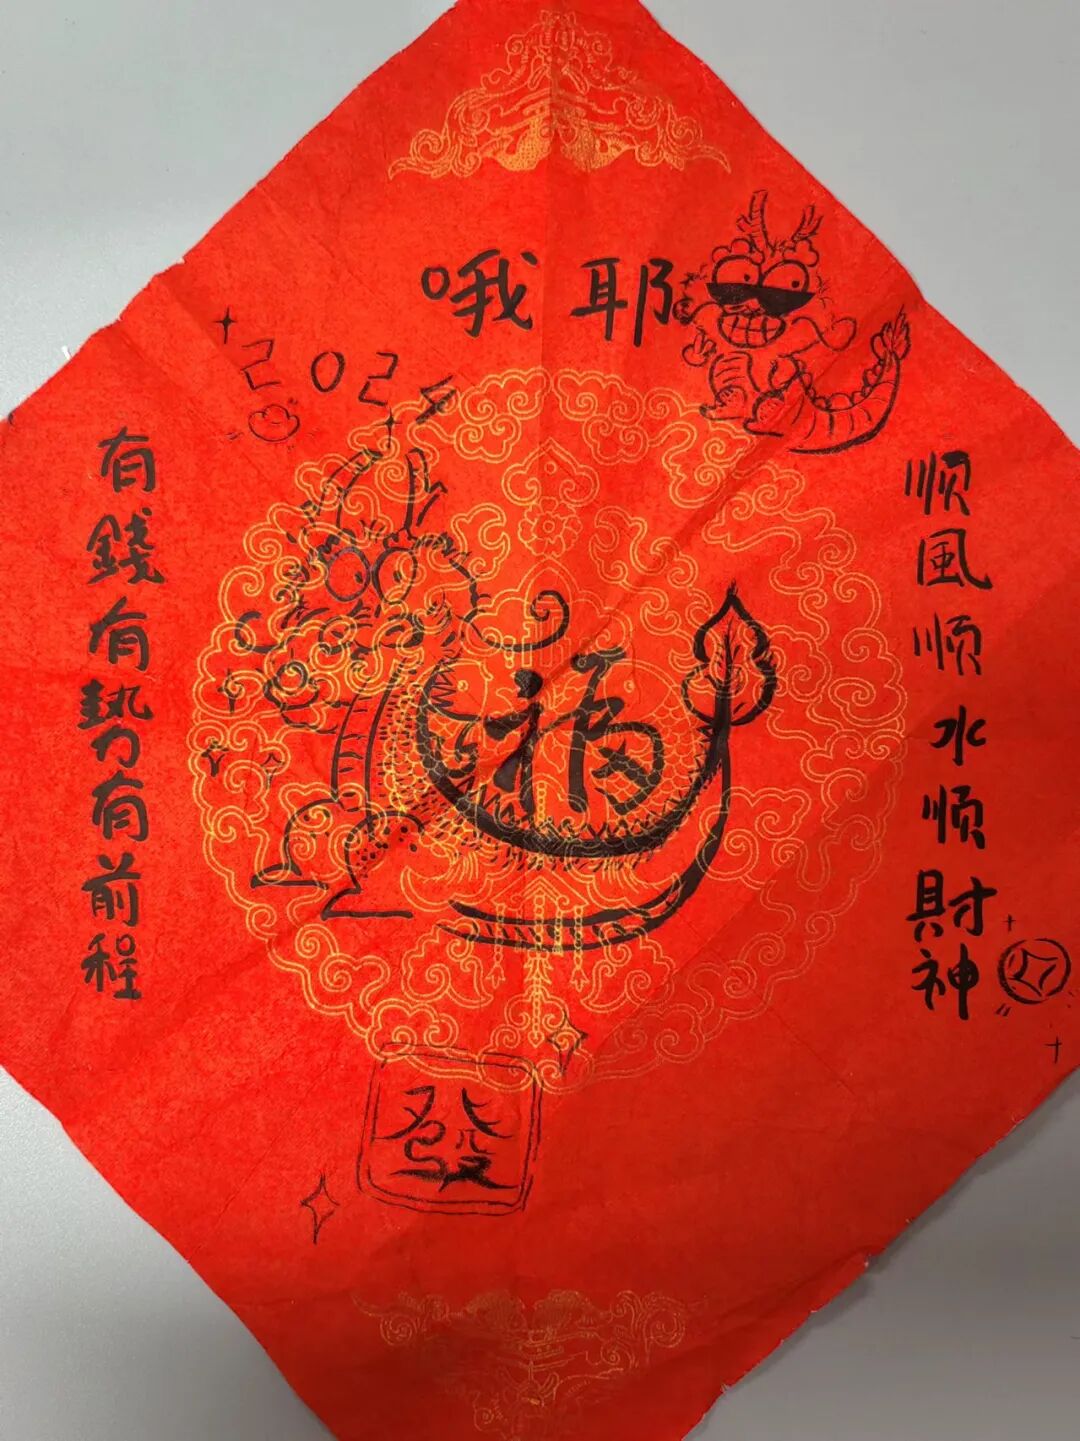 哦耶
2024
顺風顺水顺財神
有錢有勢有前程
福
發